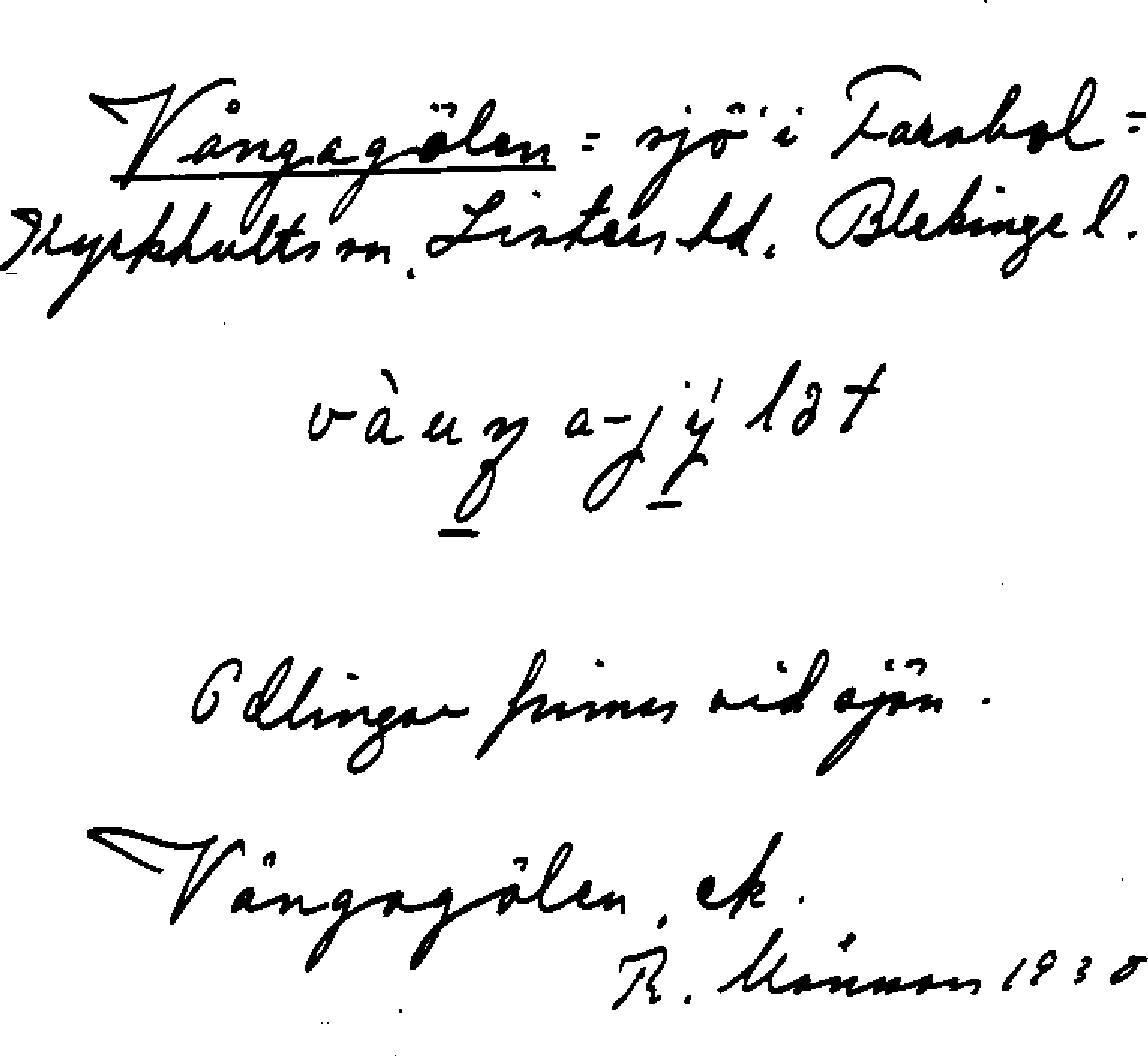 Vångagölen = sjö i Farabol =
Kyrkhults sn, Listers hd, Blekinge l.
vàuŋa-jýlət
Odlingar finnes vid sjön.
Vångagölen, ek.
R. 1930